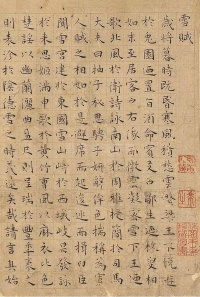 雪賦
歲將暮時既昏寒風積愁雲繁梁王不悅遊
於兔園迺置旨酒命賓友召鄒生延枚叟相
如末至居客之右俄而微霰零密雪下王迺
歌北風於衛詩詠南山於周雅授簡於司馬
大夫曰抽子秘思騁子妍辭侔色揣稱為寡
人賦之相如於是避席而起逡巡而揖曰臣
聞雪宮建於東國雪山峙於西域岐昌發詠
於來思姬滿申歌於黃竹曹風以麻衣比色
楚謠以幽蘭儷曲盈尺則呈瑞於豐年袤丈
則表沴於陰德雪之時義遠矣哉請言其始